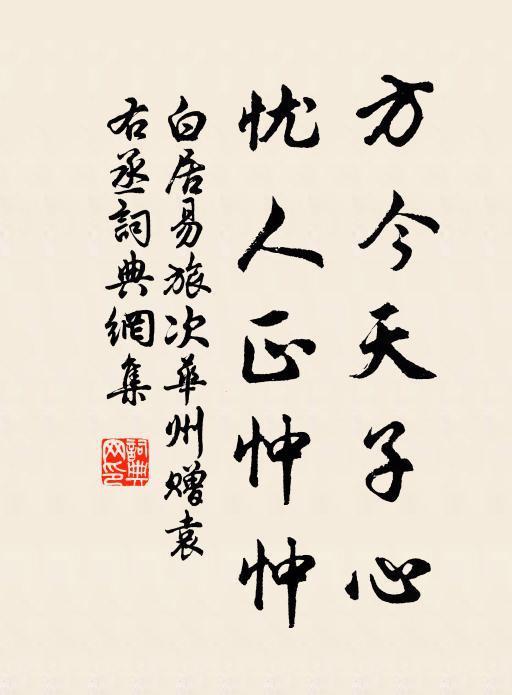 方今天子心
忧人正忡忡
白居易旅次華州赠袁
右丞詞典網集
詞典网印